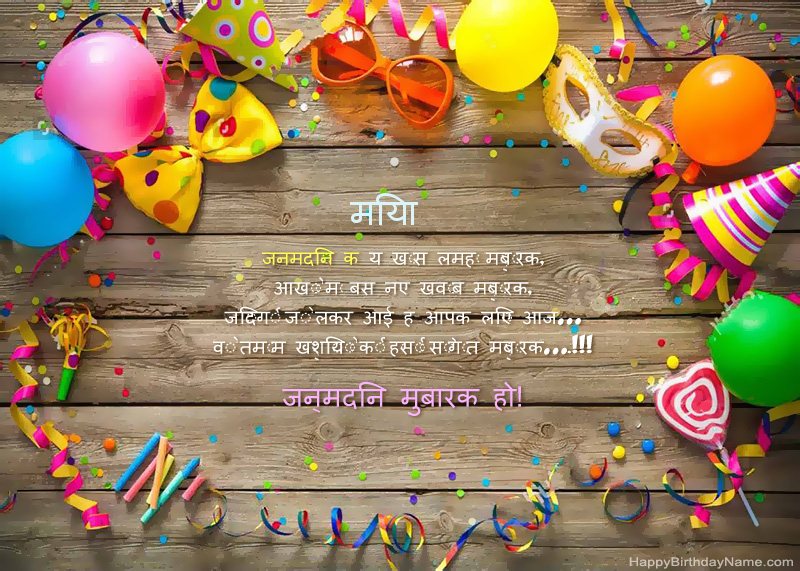 मिया
जन्मदिन के ये खास लम्हें मुबारक,
आँखों में बसे नए ख्वाब मुबारक,
जिंदगी जो लेकर आई है आपके लिए आज...
वो तमाम खुशियों की हसीं सौगात मुबारक...!!!
जन्मदिन मुबारक हो!
HappyBirthdayName.com